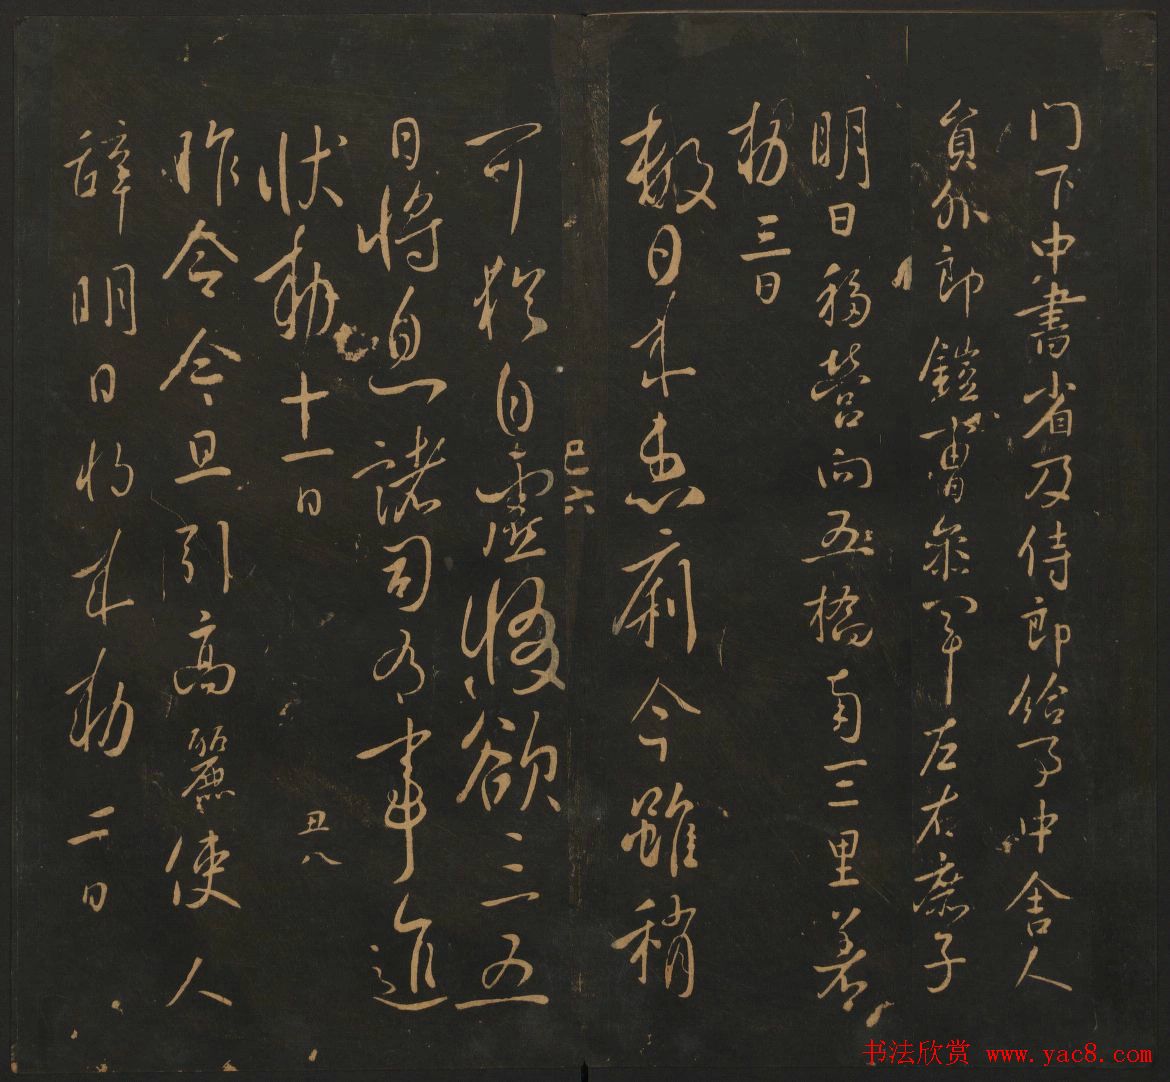 门下中書省及侍郎給事中舍人
員外郎鎧曹參軍左右庶子
明日移營向五橋南三里着
敕三日
數日來患痢今雖稍
巳六
可猶自虛惙欲三五
日將息諸司有事進
狀敕十一日
丑八
昨令今旦引高麗使人
辭明日將來敕二日
书法欣赏 www.yac8.com